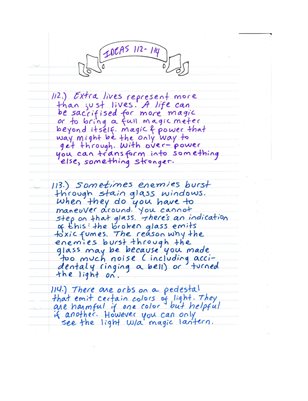 IDEAS 112-114
112.) Extra lives represent more
than just lives. A life can
be sacrifised for more magic
or to bring a full magic meter
beyond itself. Magic & power that
way might be the only way to
get through. With over-power
you can transform into something
else, something stronger.
113.) Sometimes enemies burst
through stain glass windows.
When they do you have to
maneover around. You cannot
step on that glass. There's an indication
of this: the broken glass emits
toxic fumes. The reason why the
enemies burst through the
glass may be because you made
too much noise (including acci-
dentaly ringing a bell) or turned
the light on.
114.) There are orbs on a pedestal
that emit certain colors of light. They
are harmful if one color but helpful
if another. However you can only
see the light w/a magic lantern.